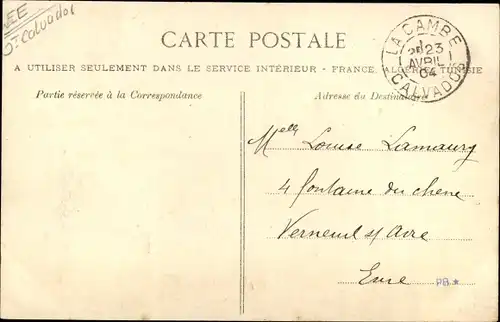 ÉE
Calvados
CARTE POSTALE
LA CAMBE
2E 23
AVRIL
04
CALVADOS
A UTILISER SEULEMENT DANS LE SERVICE INTÉRIEUR - FRANCE, ALGÉRIE, TUNISIE
Partie réservée à la Correspondance
Adresse du Destinataire
Melle Louise Lamaury
4 fontaine du chene
Verneuil s/ Avre
Eure
PB *